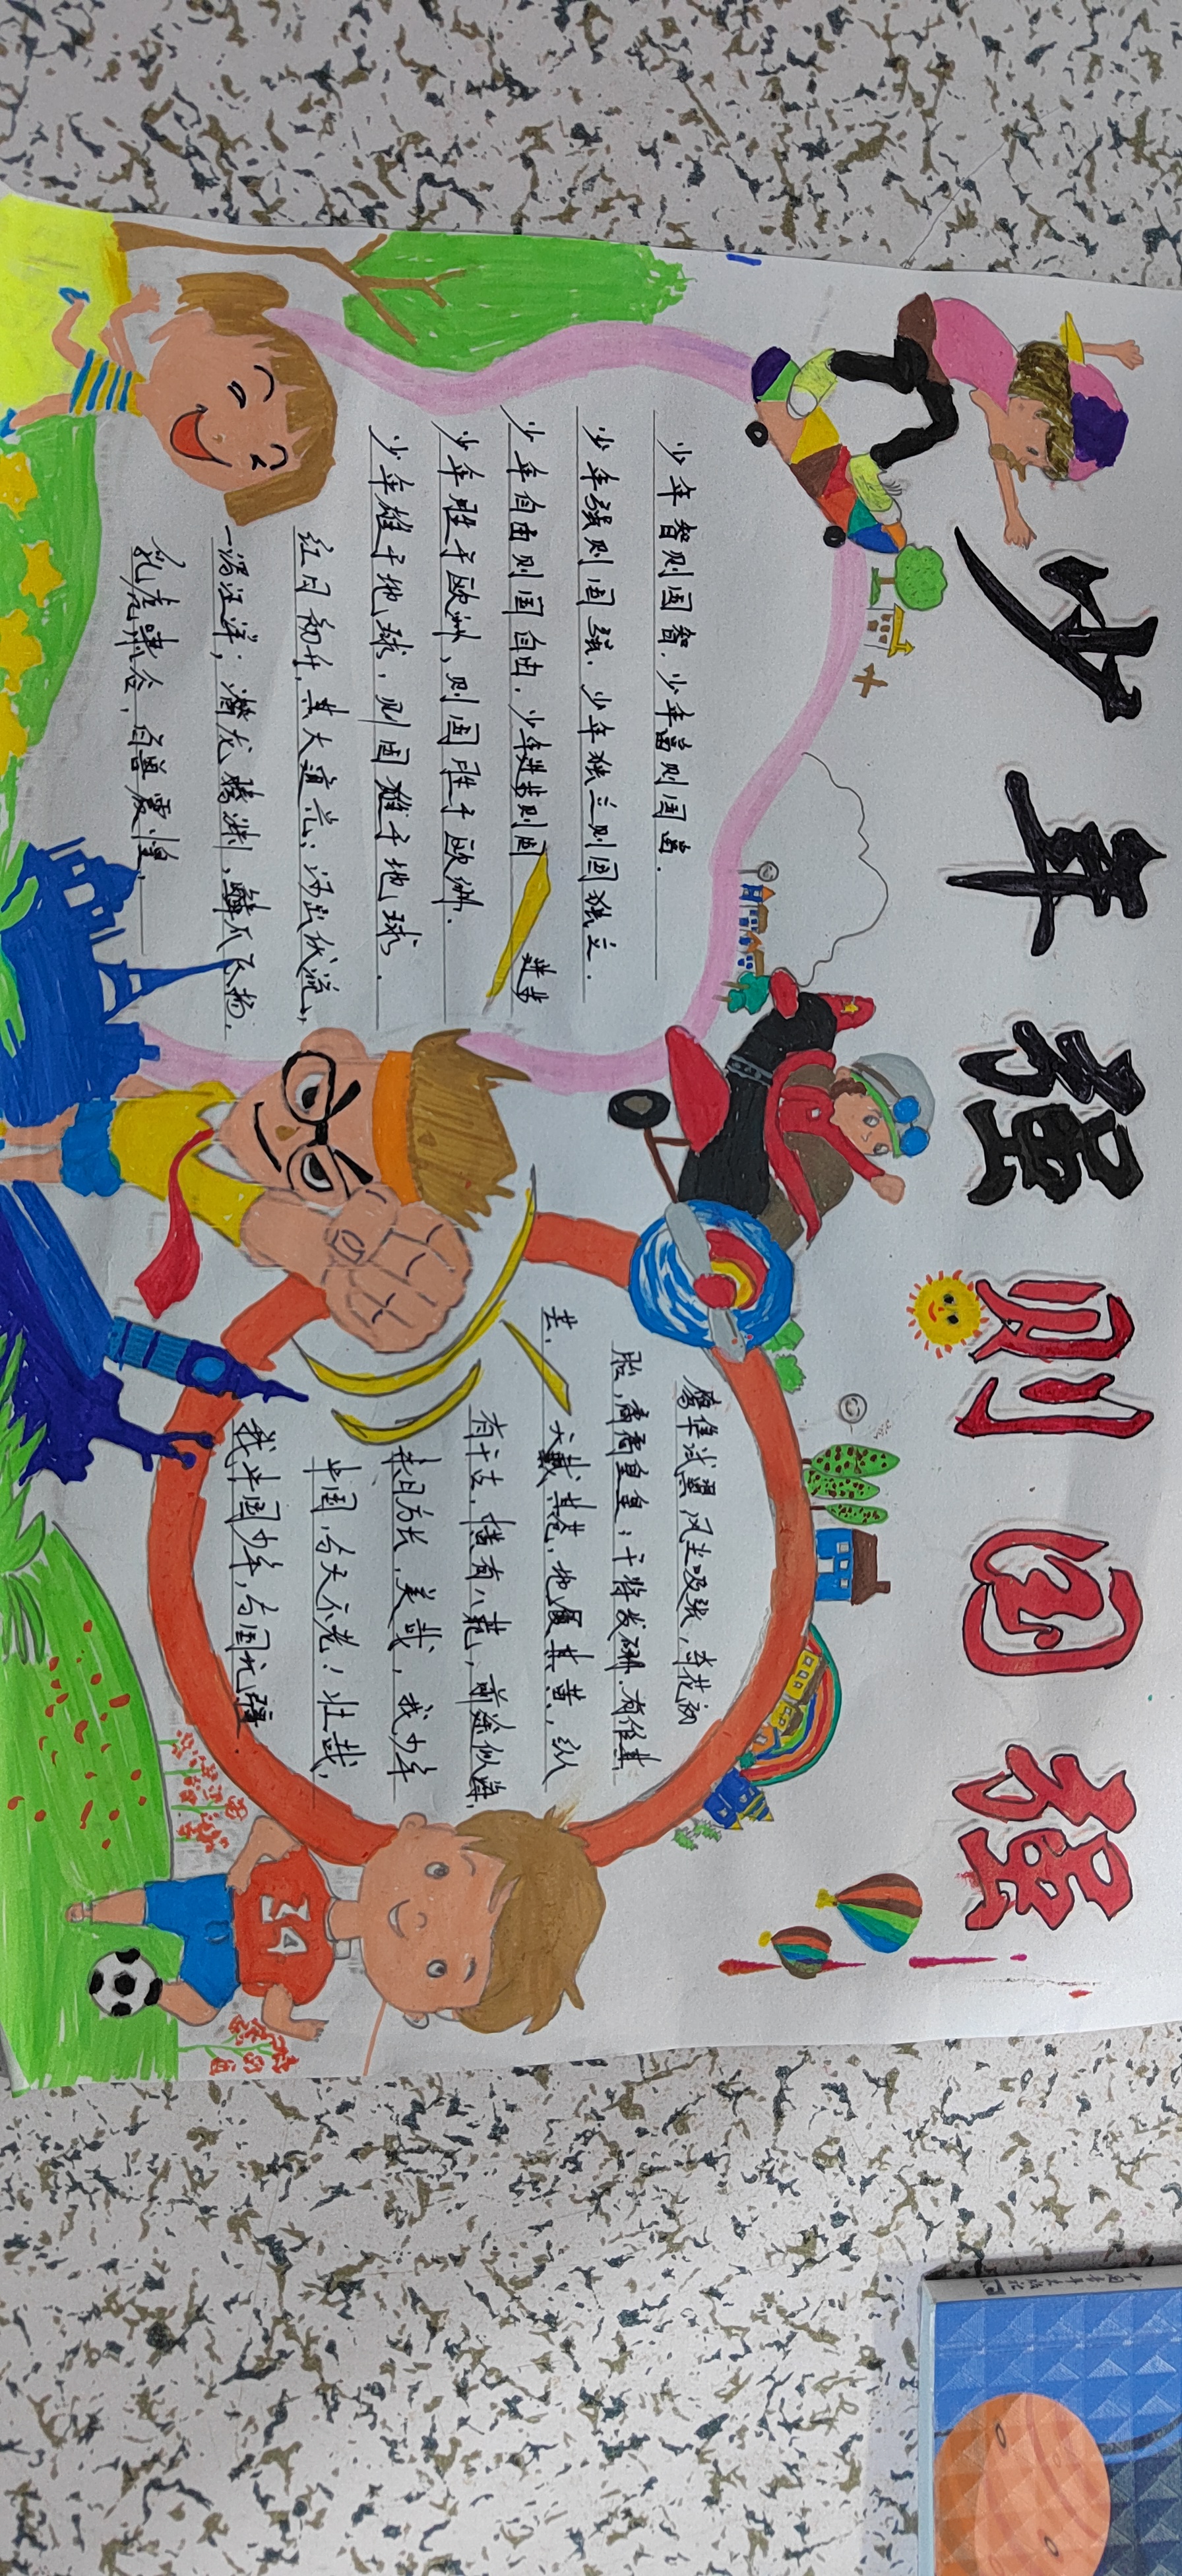 少年强则国强
少年智则国智，少年富则国富。
少年强则国强，少年独立则国独立．
少年自由则国自由，少年进步则国
进步
少年胜于欧洲，则国胜于欧洲．
少年雄于地球，则国雄于地球．
红日初升，其大道光；河出伏流，
一泻汪洋；潜龙腾渊，鳞爪飞扬．
乳虎啸谷，百兽震惶．
鹰隼试翼，风尘吸张，奇花初
胎，矞矞皇皇；干将发硎，有作其
芒．
天戴其苍，地履其黄，纵
有千古，横有八荒，前途似海，
来日方长，美哉，我少年
中国，与天不老！壮哉，
我中国少年，与国无疆．
34